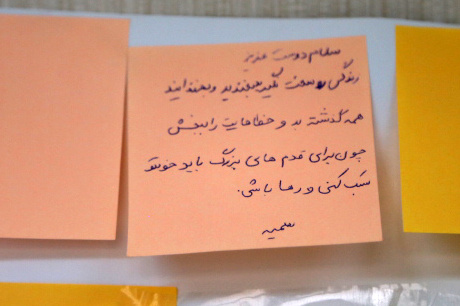 سلام دوست عزیز
زندگی رو سخت نگیر بخندید و بخندانید
همه گذشته بد و خطاهایت را ببخش
چون برای قدم های بزرگ باید خودتو
سبک کنی و رها باشی.
سمیه